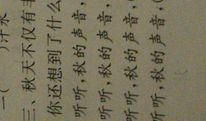 一(　)汗水
三、秋天不仅有
你还想到了什么
听听,秋的声音,
听听,秋的声音,
听听,秋的声音,
听听,秋的声音,